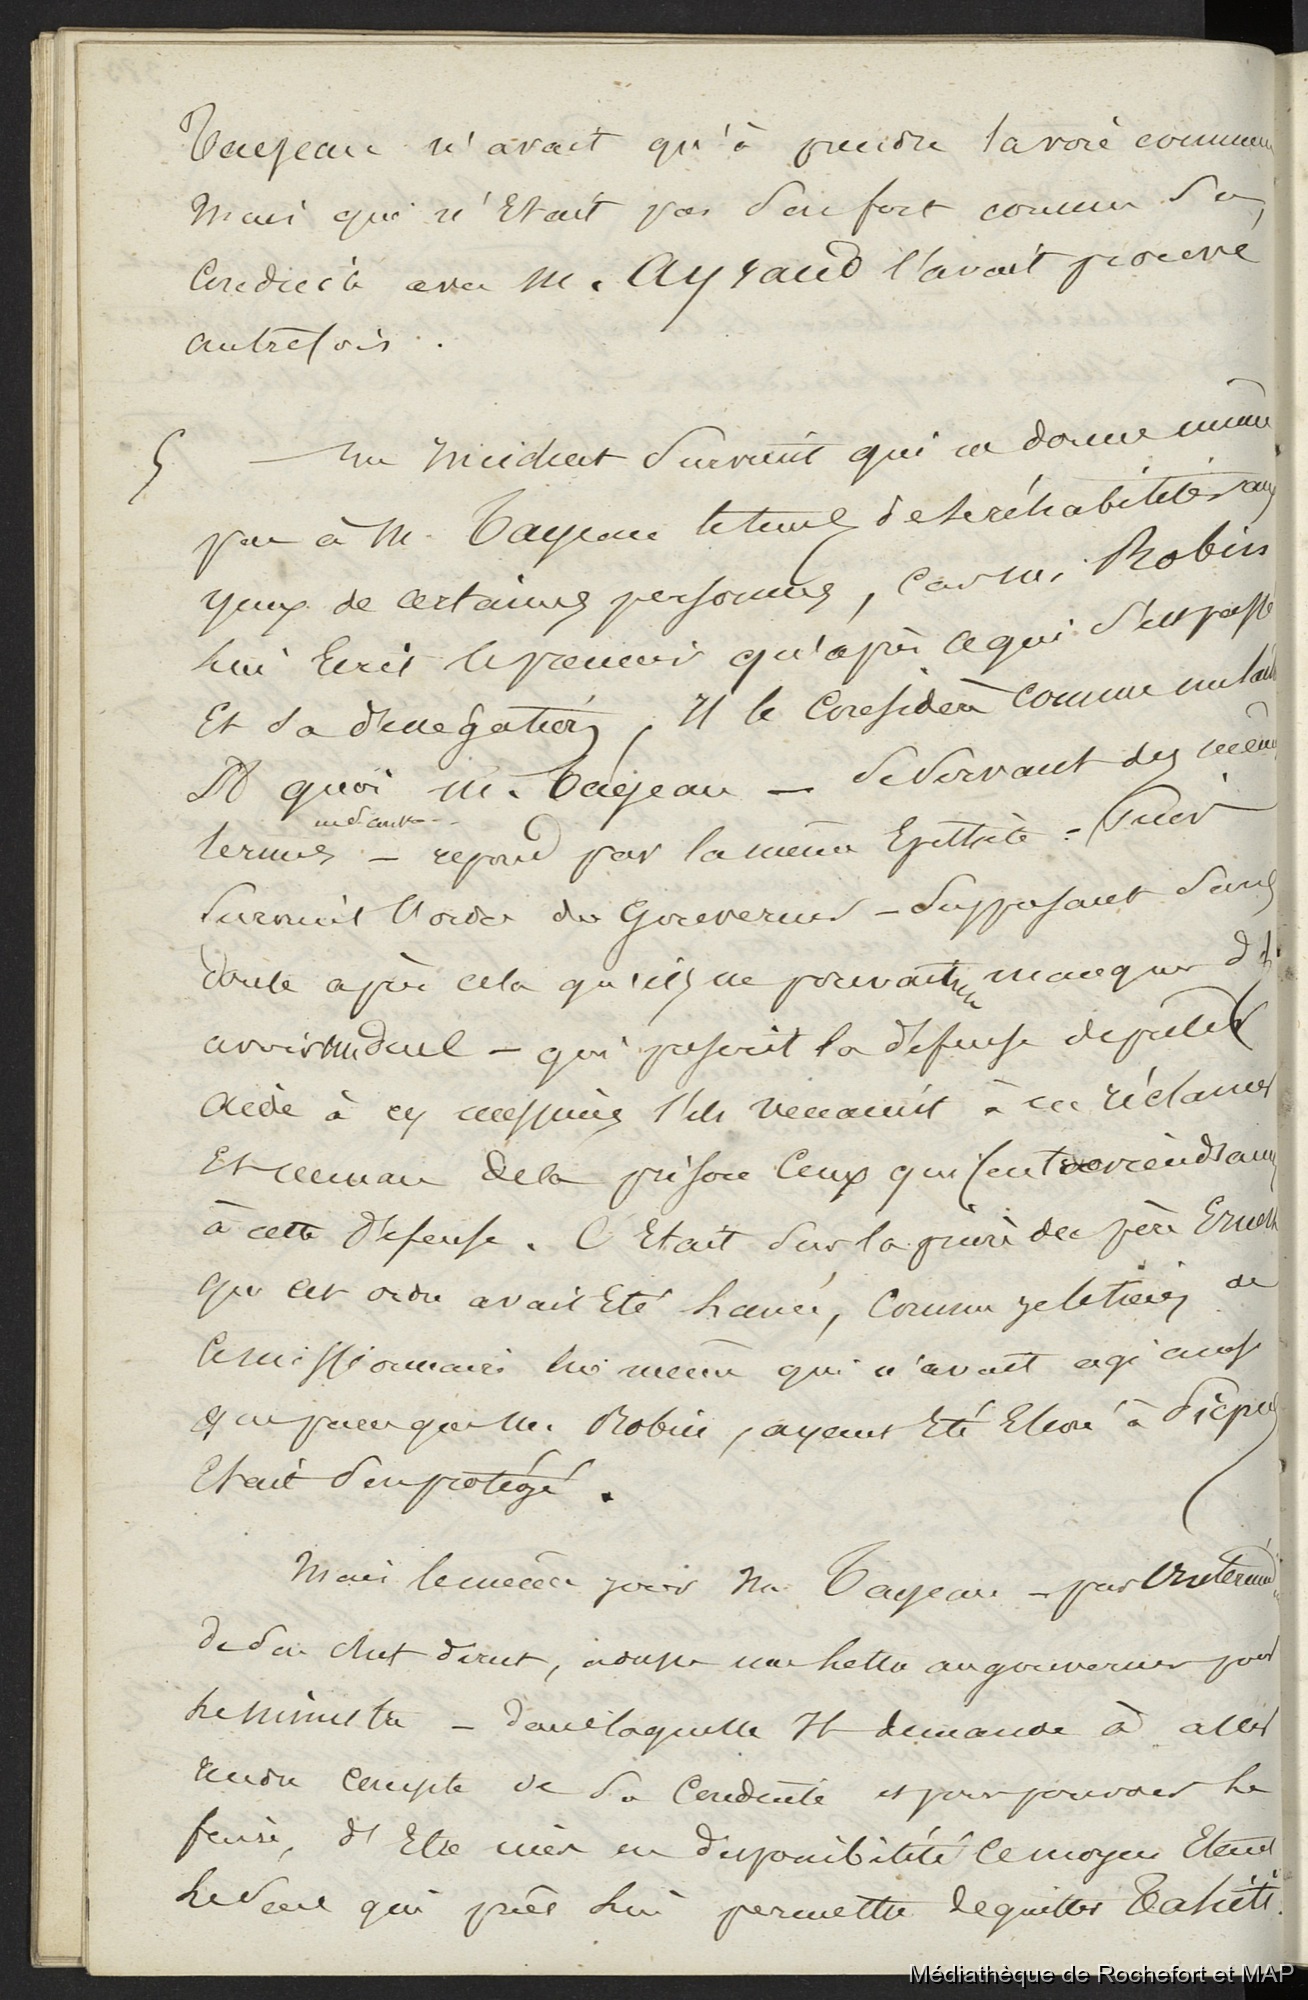 Tayeau n'avait qu'à prendre la voie commune
Mais qui n'Etait pas son fort comme sa
Conduite avec M. Ayraud l'avait prouvé
autrefois.
§ — Un Incident survient qui ne donne même
pas à M. Tayeau le tems de se réhabiliter aux
yeux de certaines personnes, car M. Robin
lui Ecrit le premier qu'après ce qui s'est passé
Et sa dénégation, Il le Considère comme un lâche
A quoi M. Tayeau — se servant des mêmes
termes — répond par la même Epithète - Puis
survient l'ordre du Gouverneur — supposant sans
doute après cela qu'ils ne pouvaient manquer d'
avoir un duel — qui prescrit la défense de prêter
aide à ces messieurs s'ils venaient à en réclamer
Et menace de la prison Ceux qui contreviendraient
à cette défense. C'Etait sur la prière du père Ernest
que cet ordre avait Eté lancé, comme je le tiens de
ce missionnaire lui même qui n'avait agi ainsi
que parce que M. Robin, ayant Eté Elevé à Picpus
Etait son protégé.
Mais le même jour M. Tayeau — par l'Intermédi
de son chef direct, adresse une lettre au gouverneur pour
le Ministre — dans laquelle Il demande à aller
rendre compte de sa Conduite et pour pouvoir le
faire, d'Etre mis en disponibilité le moyen Etant
le seul qui pût lui permettre de quitter Tahiti.
Médiathèque de Rochefort et MAP